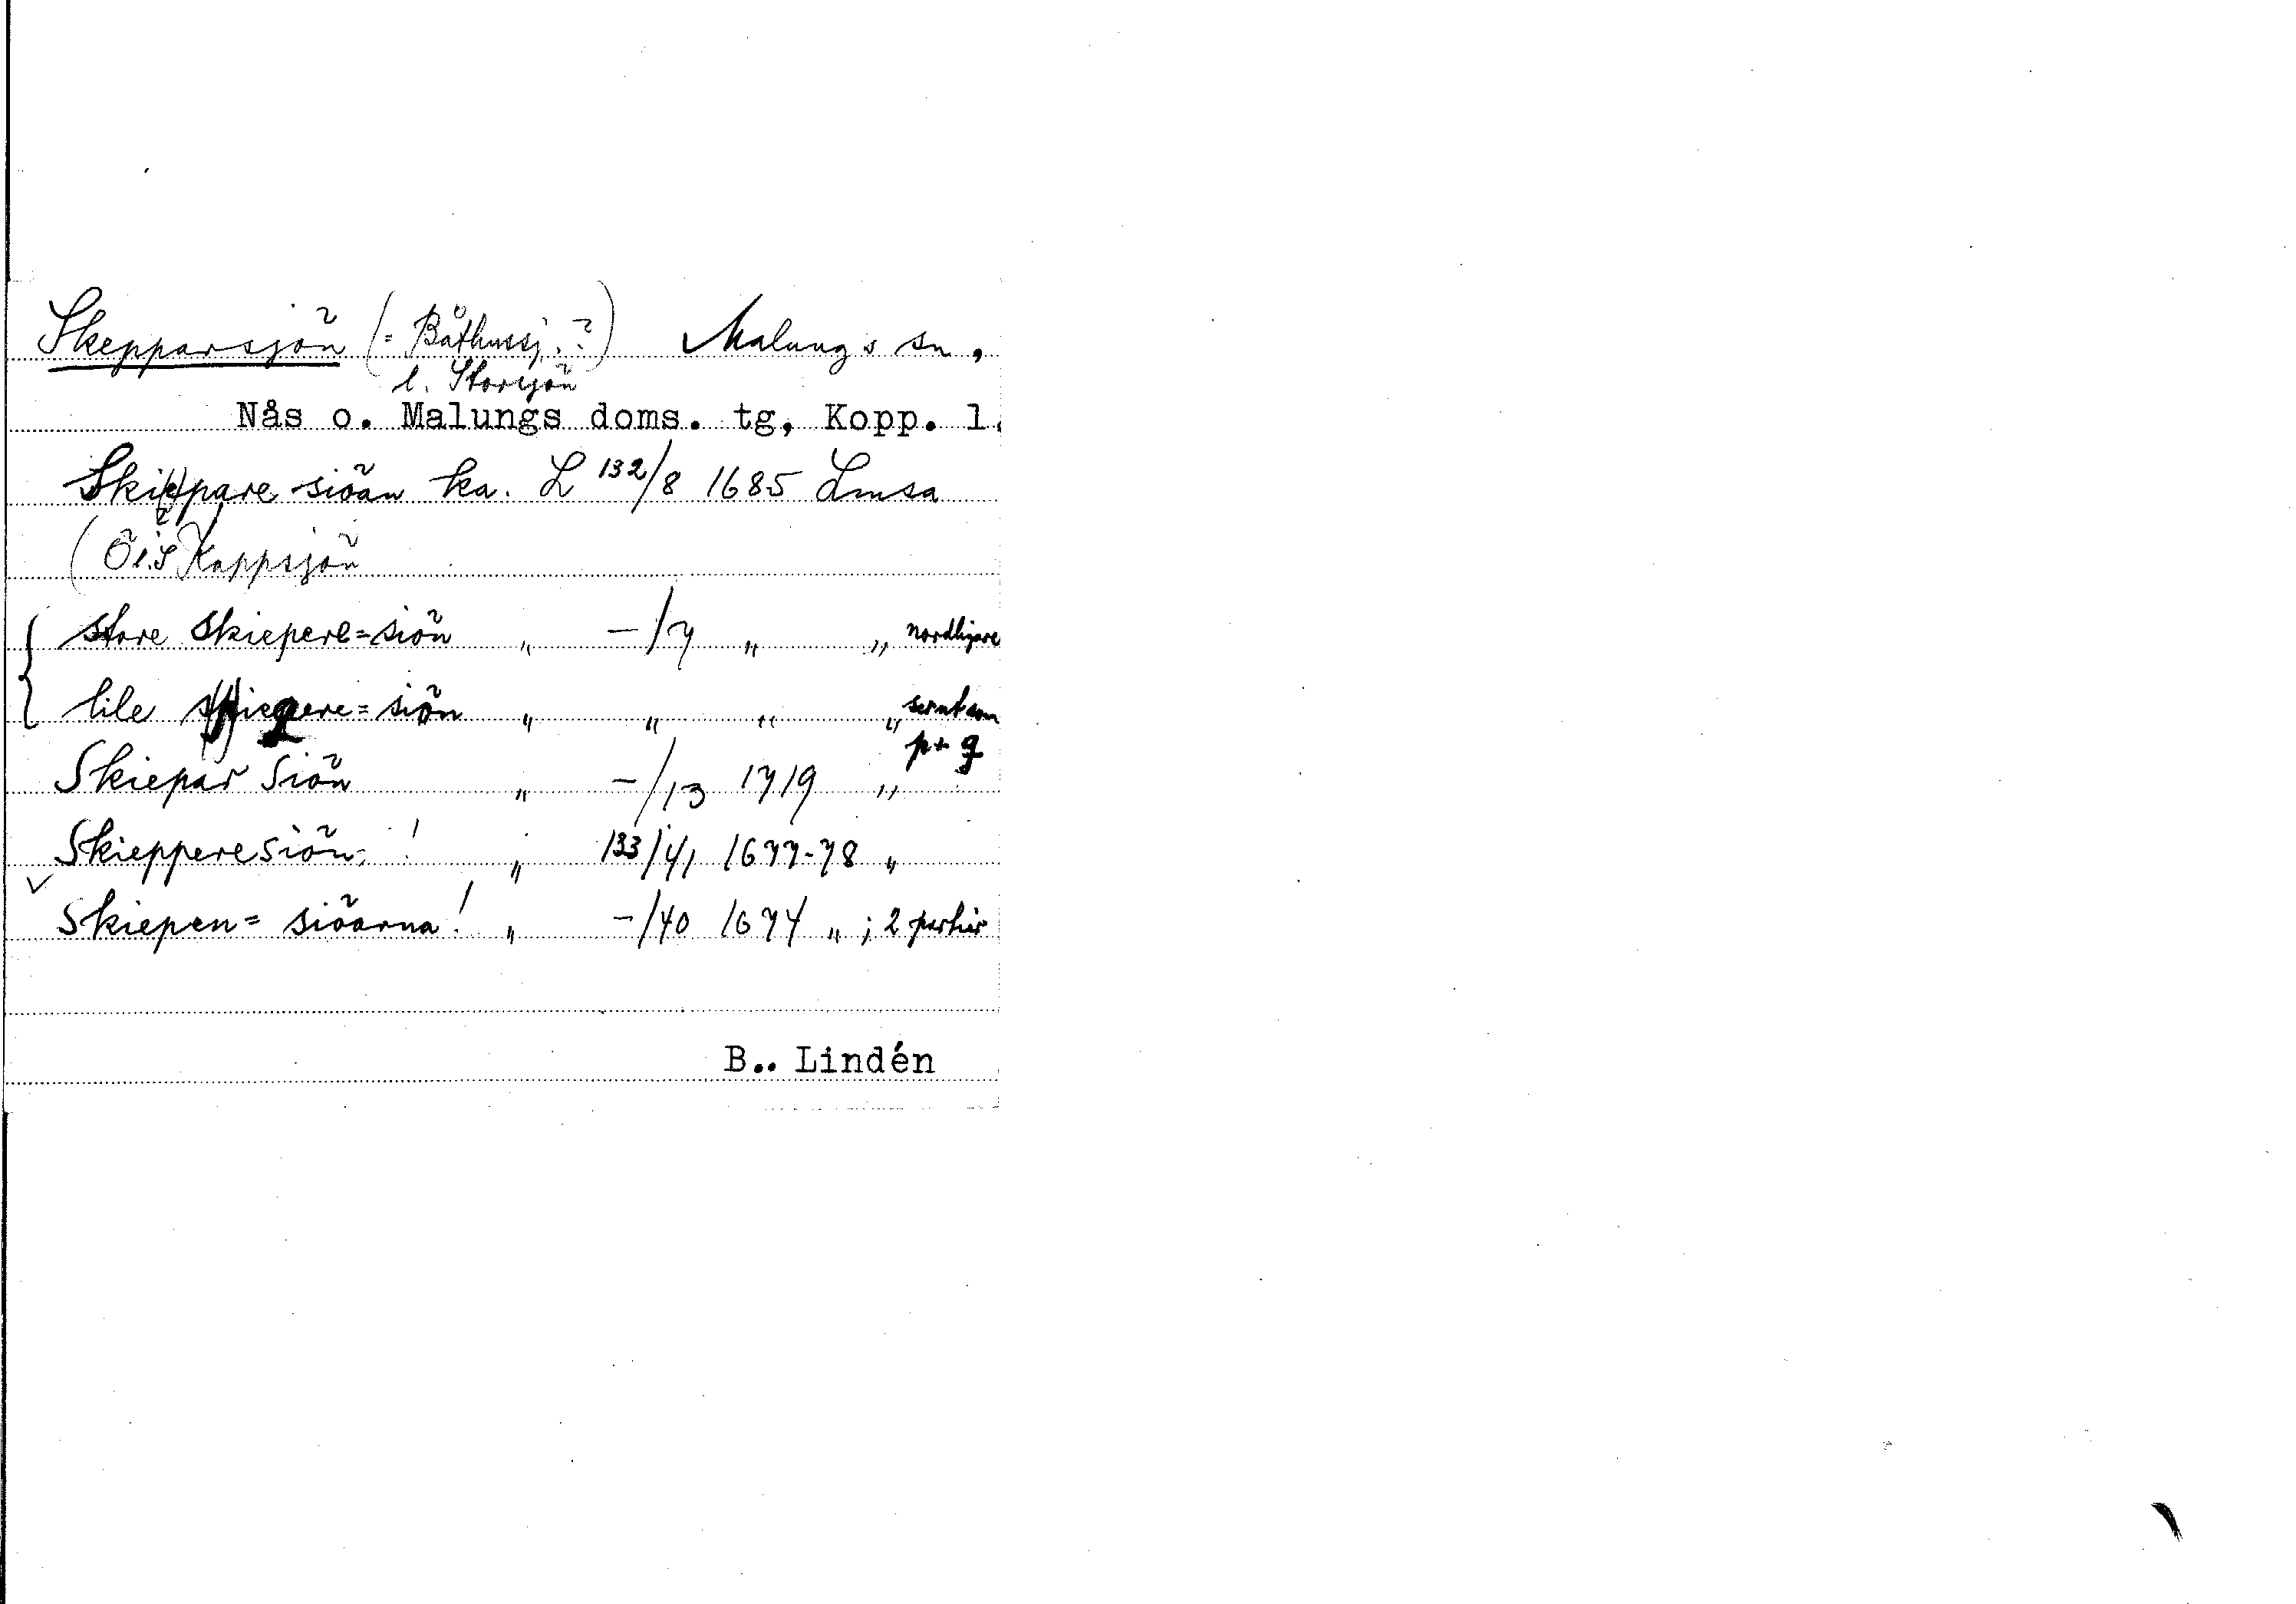 Skepparsjön (= Båthussj. ?) Malungs sn,
l. Storsjön
Nås o. Malungs doms. tg, Kopp. l.
Skieppare siöan ka. L 132/8 1685 Lmsa
(Ö l. S Kappsjön
store Skiepere=siön „ -/7 „ „ nordligare
lile skiepere=siön „ „ „ „ sernt som
p + g
Skiepar Siön „ -/13 1719 „
Skieppere siön ! „ 133/41 1677-78 „
Skiepen= siöarna! „ -/40 1674 „ ; 2 partier
B.. Lindén